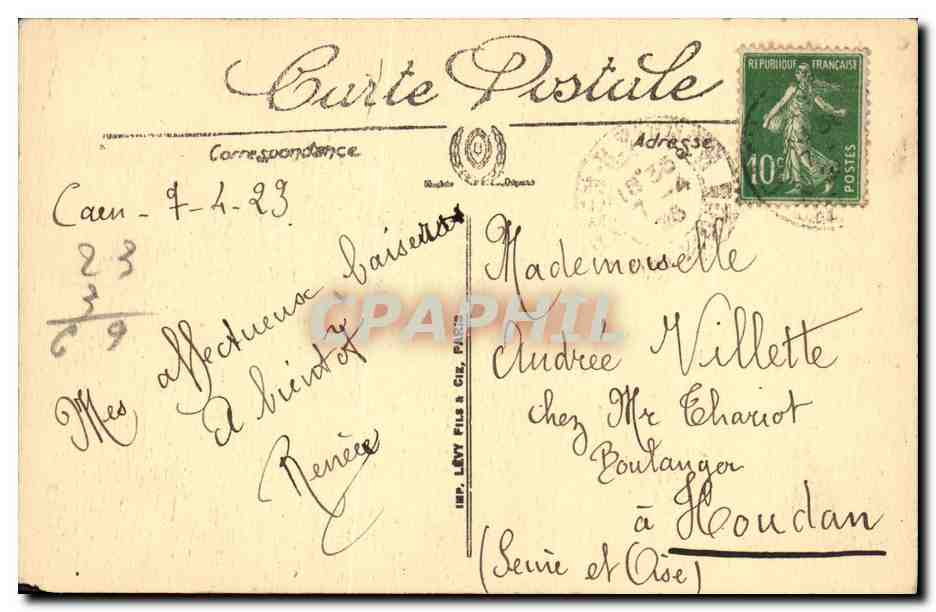 Carte Postale
Correspondance
Adresse
REPUBLIQUE FRANÇAISE
10c
POSTES
Caen - 7-4-23
23
3
69
Mes affectueux baisers
A bientot
Renée
CPAPHIL
IMP. LÉVY FILS & CIE, PARIS
Mademoiselle
Andrée Villette
chez Mr Thariot
Boulanger
à Houdan
(Seine et Oise)